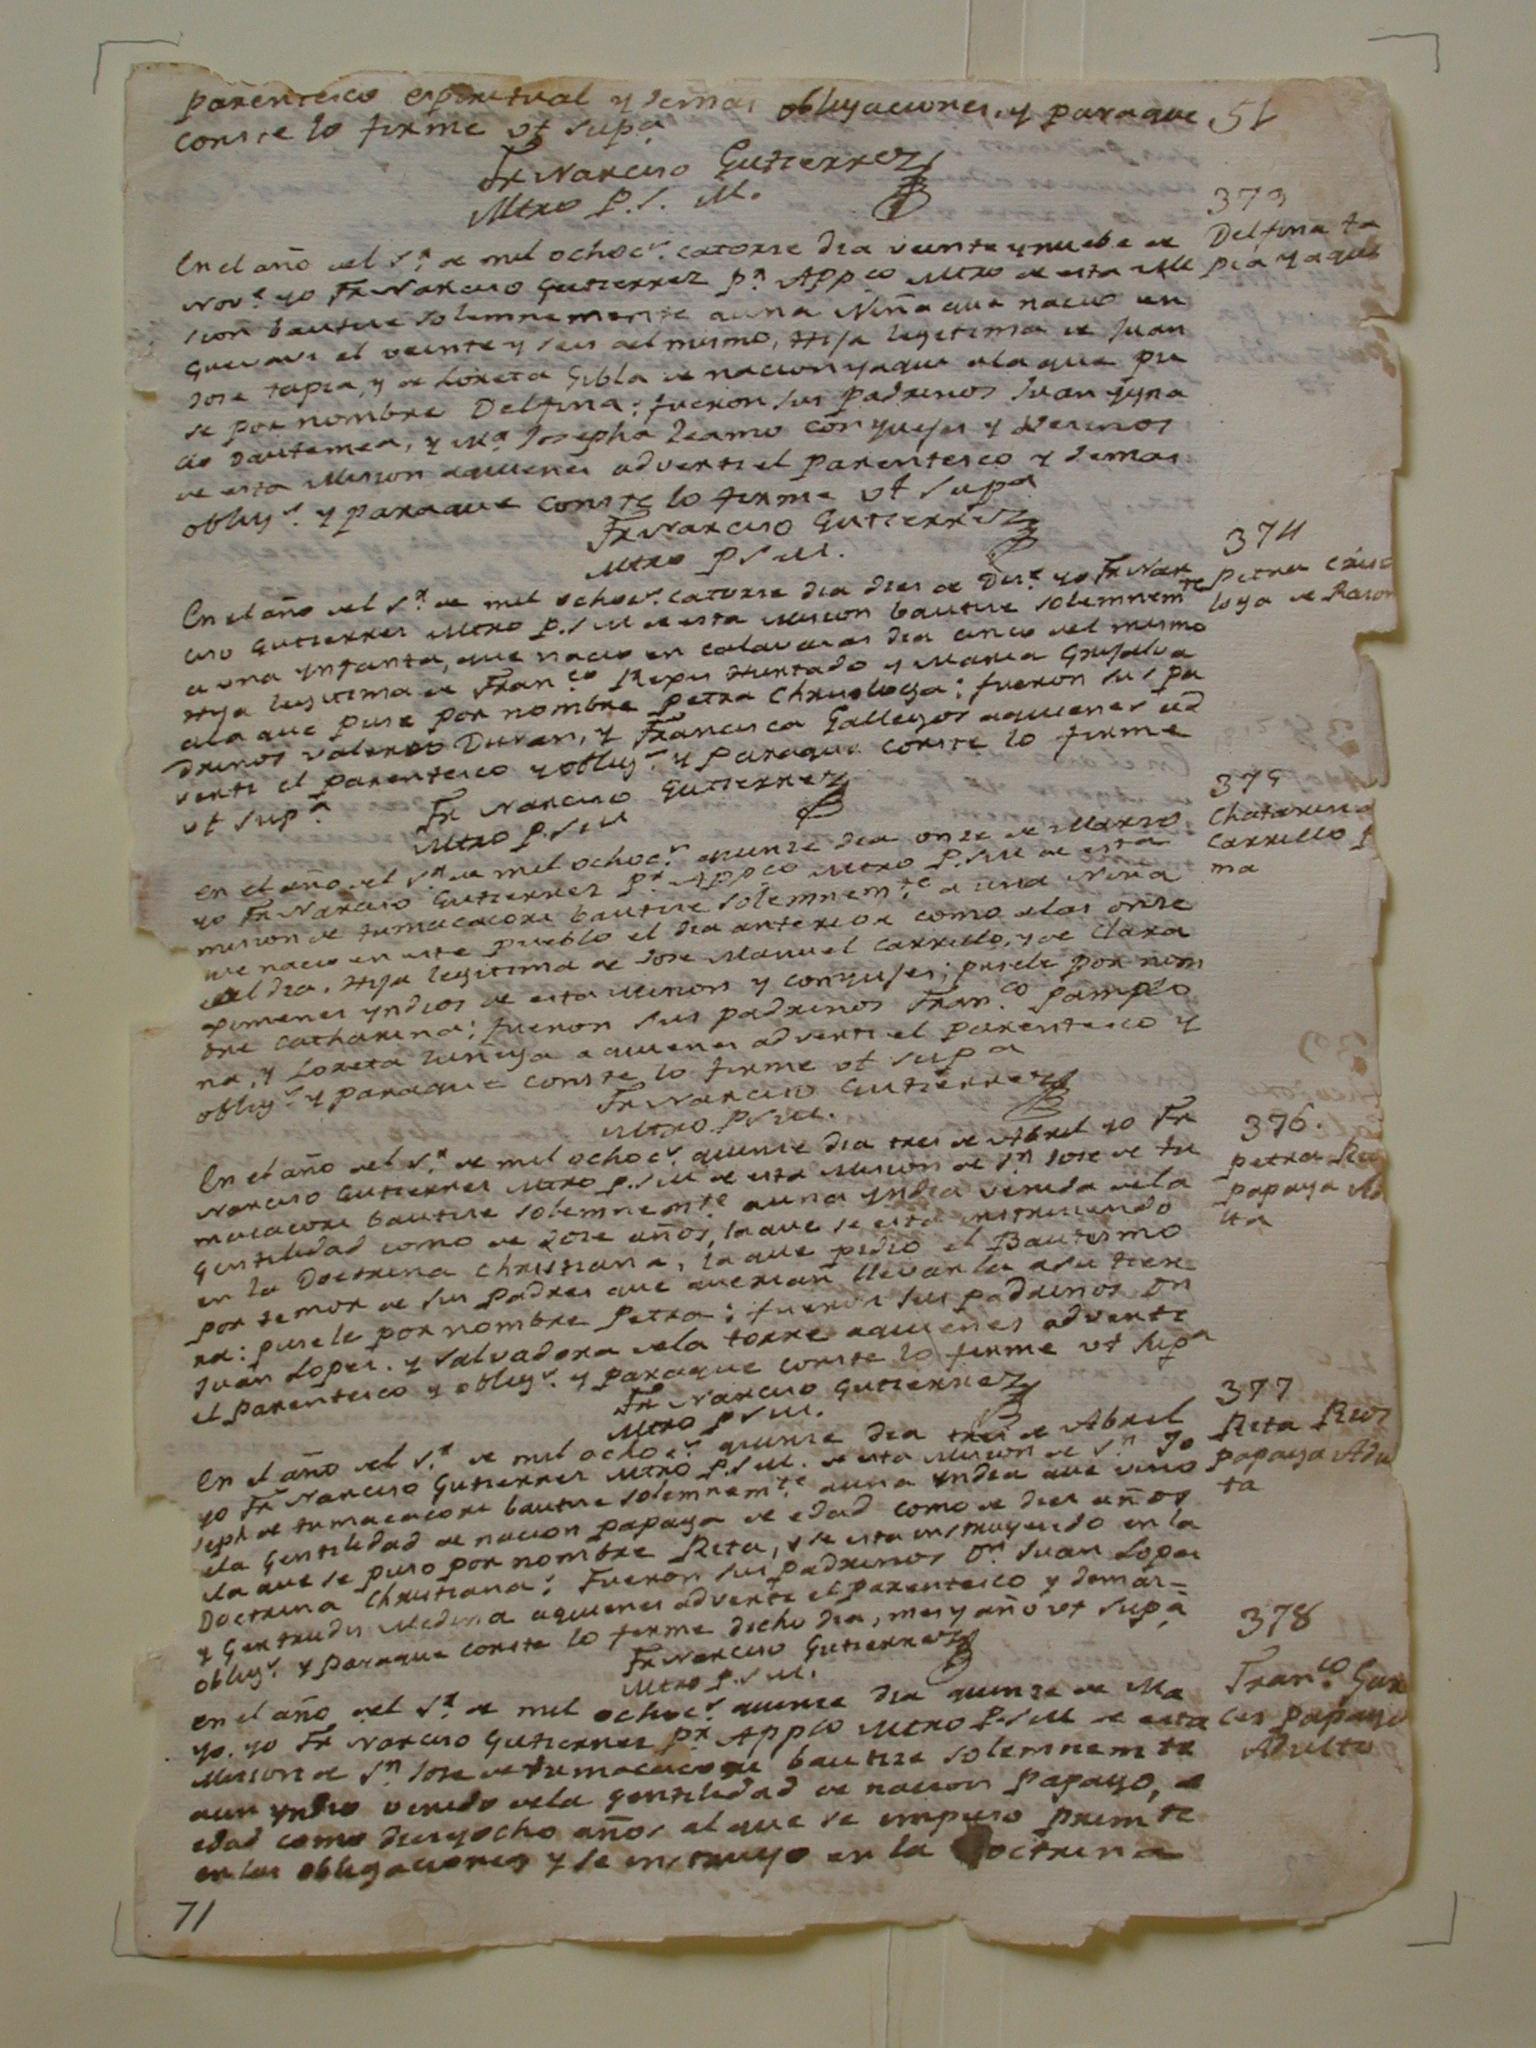 parentesco espiritual y demas obligaciones, y paraque 51
conste lo firme ut supª
Fr Narciso Gutierrez
Mtro P. S. M.
373
Delfina ta
pia yaqui
En el año del Sr. de mil ochocs. catorse dia veinte y nuebe de
Nove. yo Fr Narciso Gutierrez Pr. Appco Mtro de esta Mi
sion bautise solemnemente a una Niña que nacio en
Guevavi el veinte y seis del mismo, Hija legitima de Juan
Jose tapia, y de Loreta Gibla de nacion yaqui a la que pu
se por nombre Delfina: fueron sus padrinos Juan Ygna
cio y Mª Josepha conyuges y vesinos
de esta Mision aquienes adverti el parentesco y demas
obligs. y paraque conste lo firme ut supª
Fr Narciso Gutierrez
Mtro P S M.
374
Petra Criso
loga de Rason
En el año del Sr. de mil ochocs. catorse dia dies de Dise. yo Fr Nar
ciso Gutierres Mtro P. S M de esta Mision bautise solemnemte
a una ynfanta, que nacio en calavasas dia cinco del mismo
Hija legitima de Franco. Reyes Hurtado y Maria Grijalva
ala que puse por nombre petra Chrisologa: fueron sus pa
drinos Valerio Duran, y Francisca Gallegos aquienes ad
verti el parentesco y obligs. y paraque conste lo firme
ut supª
Fr Narciso Gutierrez
Mtro P. S M
375
Chatarina
Carrillo P
ma
en el año del Sr. de mil ochocs. quinse dia onse de Marzo
yo Fr Narciso Gutierrez Pr. Appco Mtro P. S M de esta
mision de tumacacori bautise solemnemte a una Niña
que nacio en este pueblo el dia anterior como alas onse
del dia. Hija legitima de Jose Manuel Carrillo, y de Clara
ximenes yndios de esta Mision y conyujes; pusele por nom
bre Catharina: fueron sus padrinos Franco. Pamplo
na, y Loreta Zuñiga aquienes adverti el parentesco y
obligs. y paraque conste lo firme ut supª
Fr Narciso Gutierrez
Mtro P S M.
376.
petra
papaga Ad
lta
En el año del Sr. de mil ochocs. quinse dia tres de Abril yo Fr
Narciso Gutierres Mtro P. S M de esta Mision de Sn Jose de tu
macacori bautise solemnemte. a una yndia venida dela
Gentilidad como de dose años, la que se esta instruiendo
en la Doctrina christiana, la que pidio el Bautismo
por temor de sus padres que querian llevarla asu tier
ra: pusele por nombre Petra: fueron sus padrinos Dn
Juan Lopes. y Salvadora dela torre aquienes adverti
el parentesco y obligs. y paraque conste lo firme ut supª
Fr Narciso Gutierrez
Mtro P S M.
377
Rita Rios
papaga Adu
ta
En el año del Sr. de mil ochocs. quinse dia tres de Abril
yo Fr Narciso Gutierres Mtro P. S M. de esta Mision de Sn Jo
seph de tumacacori bautise solemnemte a una yndia que vino
dela Gentilidad de nacion papaga de edad como de dies años
ala que se puso por nombre Rita, y se esta instruyendo en la
Doctrina Christiana: Fueron sus padrinos Dn. Juan Lopes
y Gertrudis Medina aquienes adverti el parentesco y demas=
obligs. y paraque conste lo firme dicho dia, mes y año ut supª
Fr Narciso Gutierrez
Mtro P. S M.
378
Franco. Gar
ces papago
Adulto
en el año del Sr. de mil ochocs. quinse dia quinse de Ma
yo. yo Fr Narciso Gutierres Pr. Appco Mtro P. S M de esta
Mision de Sn Jose de tumacacori bautise solemnemte
aun yndio venido dela Gentilidad de nacion papago, de
edad como diesyocho años al que se impuso primte
en las obligaciones y se instruyo en la Doctrina
71